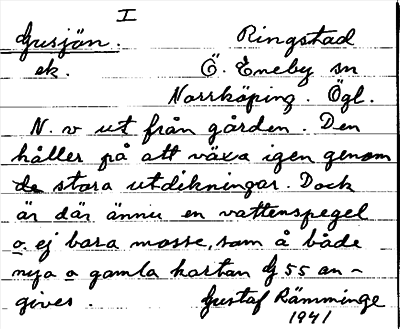 I
Gusjön. Ringstad
ek. Ö. Eneby sn
Norrköping. Ögl.
N. v ut från gården. Den
håller på att växa igen genom
de stora utdikningar. Dock
är där ännu en vattenspegel
o. ej bara mosse, som å både
nya o gamla kartan G 55 an-
gives. Gustaf Rämminge
1941